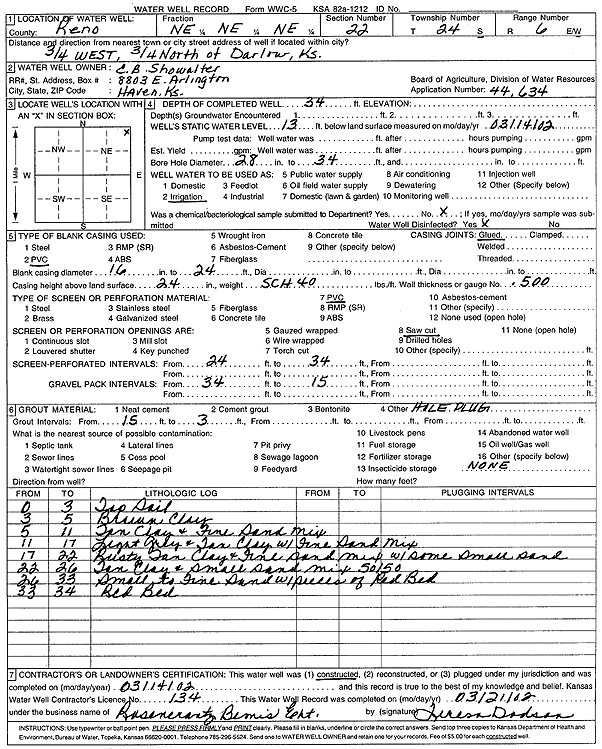 WATER WELL RECORD Form WWC-5 KSA 82a-1212 ID No.
1 LOCATION OF WATER WELL: Fraction Section Number Township Number Range Number
County: Reno NE ¼ NE ¼ NE ¼ 22 T 24 S R 6 E/W
Distance and direction from nearest town or city street address of well if located within city?
3/4 WEST, 3/4 North of Darlow, Ks.
2 WATER WELL OWNER: C.B. Showalter
RR#, St. Address, Box # : 8803 E. Arlington Board of Agriculture, Division of Water Resources
City, State, ZIP Code : Haven, Ks. Application Number: 44,634
3 LOCATE WELL'S LOCATION WITH AN "X" IN SECTION BOX:
N
X
NW NE
W E
SW SE
S
1 Mile
4 DEPTH OF COMPLETED WELL 34 ft. ELEVATION:
Depth(s) Groundwater Encountered 1 ft. 2. ft. 3. ft.
WELL'S STATIC WATER LEVEL 13 ft. below land surface measured on mo/day/yr 03/14/02
Pump test data: Well water was ft. after hours pumping gpm
Est. Yield gpm: Well water was ft. after hours pumping gpm
Bore Hole Diameter 28 in. to 34 ft., and in. to ft.
WELL WATER TO BE USED AS: 5 Public water supply 8 Air conditioning 11 Injection well
1 Domestic 3 Feedlot 6 Oil field water supply 9 Dewatering 12 Other (Specify below)
2 Irrigation 4 Industrial 7 Domestic (lawn & garden) 10 Monitoring well
Was a chemical/bacteriological sample submitted to Department? Yes No X ; If yes, mo/day/yrs sample was submitted Water Well Disinfected? Yes X No
5 TYPE OF BLANK CASING USED: 5 Wrought iron 8 Concrete tile CASING JOINTS: Glued Clamped
1 Steel 3 RMP (SR) 6 Asbestos-Cement 9 Other (specify below) Welded
2 PVC 4 ABS 7 Fiberglass Threaded
Blank casing diameter 16 in. to 24 ft., Dia in. to ft., Dia in. to ft.
Casing height above land surface 24 in., weight SCH 40 lbs./ft. Wall thickness or gauge No. .500
TYPE OF SCREEN OR PERFORATION MATERIAL: 7 PVC 10 Asbestos-cement
1 Steel 3 Stainless steel 5 Fiberglass 8 RMP (SR) 11 Other (specify)
2 Brass 4 Galvanized steel 6 Concrete tile 9 ABS 12 None used (open hole)
SCREEN OR PERFORATION OPENINGS ARE: 5 Gauzed wrapped 8 Saw cut 11 None (open hole)
1 Continuous slot 3 Mill slot 6 Wire wrapped 9 Drilled holes
2 Louvered shutter 4 Key punched 7 Torch cut 10 Other (specify) ft.
SCREEN-PERFORATED INTERVALS: From 24 ft. to 34 ft., From ft. to ft.
From ft. to ft., From ft. to ft.
GRAVEL PACK INTERVALS: From 34 ft. to 15 ft., From ft. to ft.
From ft. to ft., From ft. to ft.
6 GROUT MATERIAL: 1 Neat cement 2 Cement grout 3 Bentonite 4 Other HOLE PLUG
Grout Intervals: From 15 ft. to 3 ft., From ft. to ft., From ft. to ft.
What is the nearest source of possible contamination: 10 Livestock pens 14 Abandoned water well
1 Septic tank 4 Lateral lines 7 Pit privy 11 Fuel storage 15 Oil well/Gas well
2 Sewer lines 5 Cess pool 8 Sewage lagoon 12 Fertilizer storage 16 Other (specify below)
3 Watertight sewer lines 6 Seepage pit 9 Feedyard 13 Insecticide storage NONE
Direction from well? How many feet?
FROM TO LITHOLOGIC LOG FROM TO PLUGGING INTERVALS
0 3 Top Soil
3 5 Brown Clay
5 11 Tan Clay & Fine Sand Mix
11 17 Light Gray & Tan Clay w/ Fine Sand Mix
17 22 Rusty Tan Clay & Fine Sand mix w/ some small sand
22 26 Tan Clay & small sand mix 50/50
26 33 Small to Fine Sand w/ pieces of Red Bed
33 34 Red Bed
7 CONTRACTOR'S OR LANDOWNER'S CERTIFICATION: This water well was (1) constructed, (2) reconstructed, or (3) plugged under my jurisdiction and was
completed on (mo/day/year) 03/14/02 and this record is true to the best of my knowledge and belief. Kansas
Water Well Contractor's Licence No. 134 This Water Well Record was completed on (mo/day/yr) 03/21/02
under the business name of Rosencrantz Bemis Ent. by (signature) Teresa Dodson
INSTRUCTIONS: Use typewriter or ball point pen. PLEASE PRESS FIRMLY and PRINT clearly. Please fill in blanks, underline or circle the correct answers. Send top three copies to Kansas Department of Health and
Environment, Bureau of Water, Topeka, Kansas 66620-0001. Telephone 785-296-5524. Send one to WATER WELL OWNER and retain one for your records. Fee of $5.00 for each constructed well.